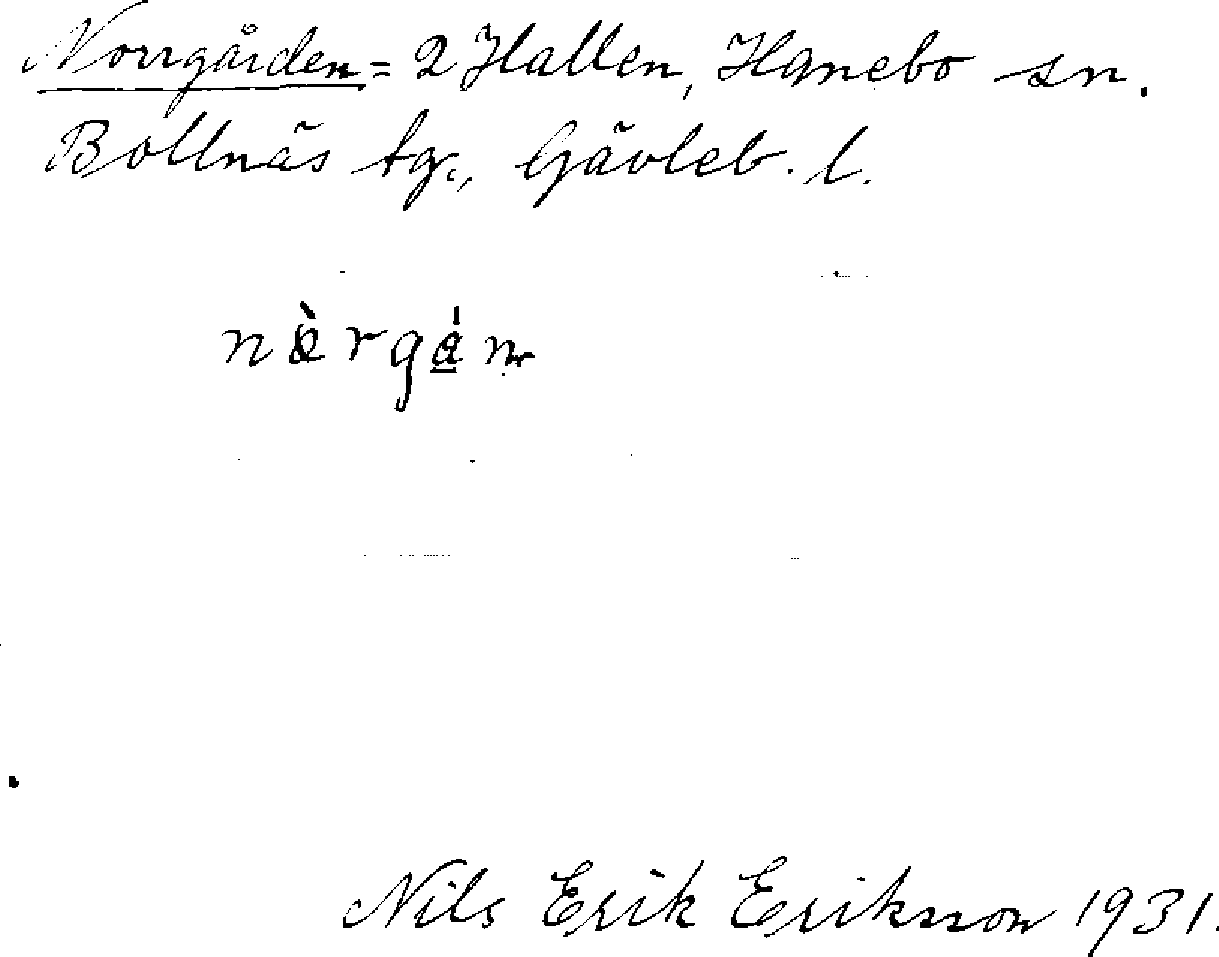 Norrgården = 2 Hallen, Hanebo sn.
Bollnäs tg., Gävleb. l.
Nils Erik Eriksson 1931.